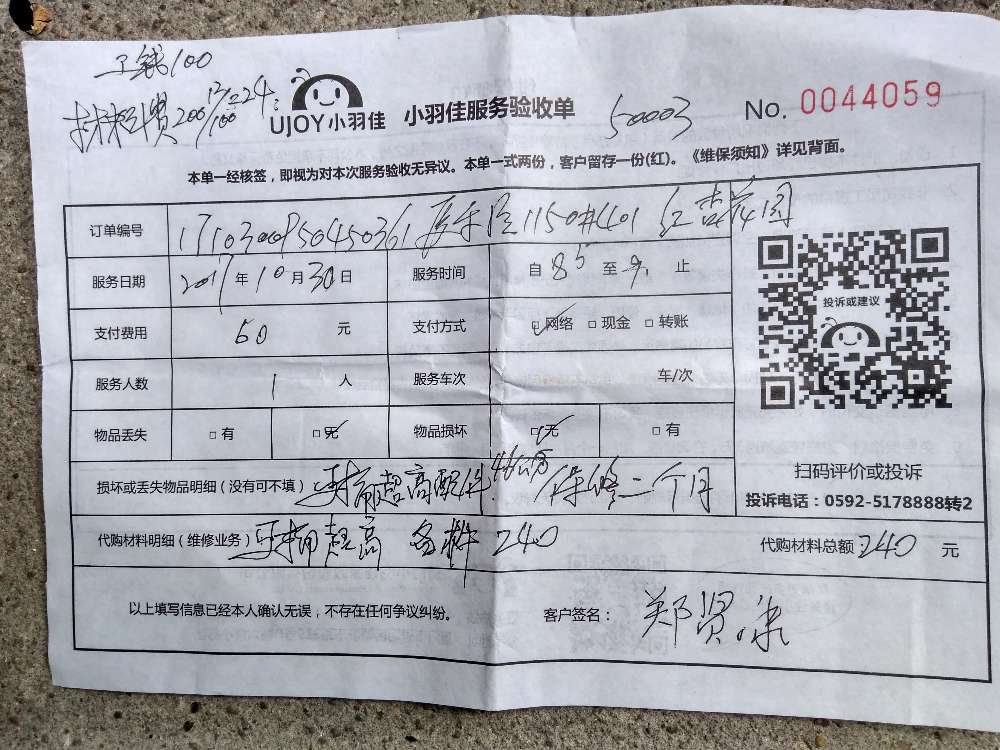 工钱100
材料费200
UJOY小羽佳 小羽佳服务验收单 50003 No. 0044059
本单一经核签，即视为对本次服务验收无异议。本单一式两份，客户留存一份(红)。《维保须知》详见背面。
订单编号 1150#401
服务日期 2017年10月30日 服务时间 自 85 至 9 止
支付费用 60 元 支付方式 □网络 □现金 □转账
服务人数 1 人 服务车次 车/次
物品丢失 □有 □无 物品损坏 □无 □有
投诉或建议
扫码评价或投诉
投诉电话：0592-5178888转2
损坏或丢失物品明细（没有可不填） 超高配件 保修二个月
代购材料明细（维修业务） 超高 240 代购材料总额 240 元
以上填写信息已经本人确认无误，不存在任何争议纠纷。 客户签名： 郑贤